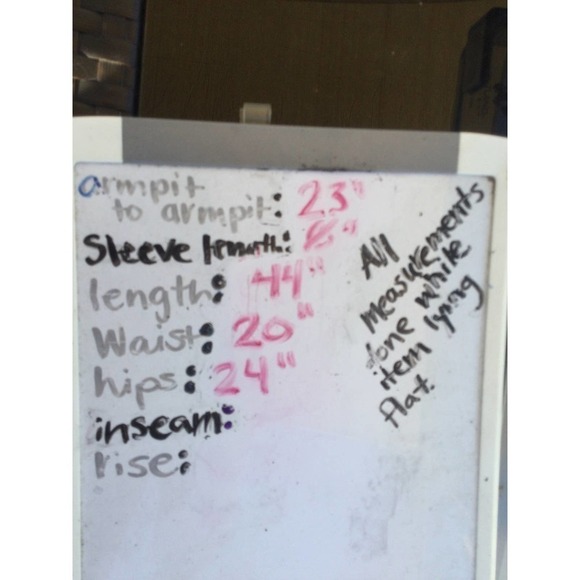 armpit
to armpit: 23"
Sleeve length: "
length: 44"
Waist: 20"
hips: 24"
inseam:
rise:
All
measurements
done while
item lying
flat.